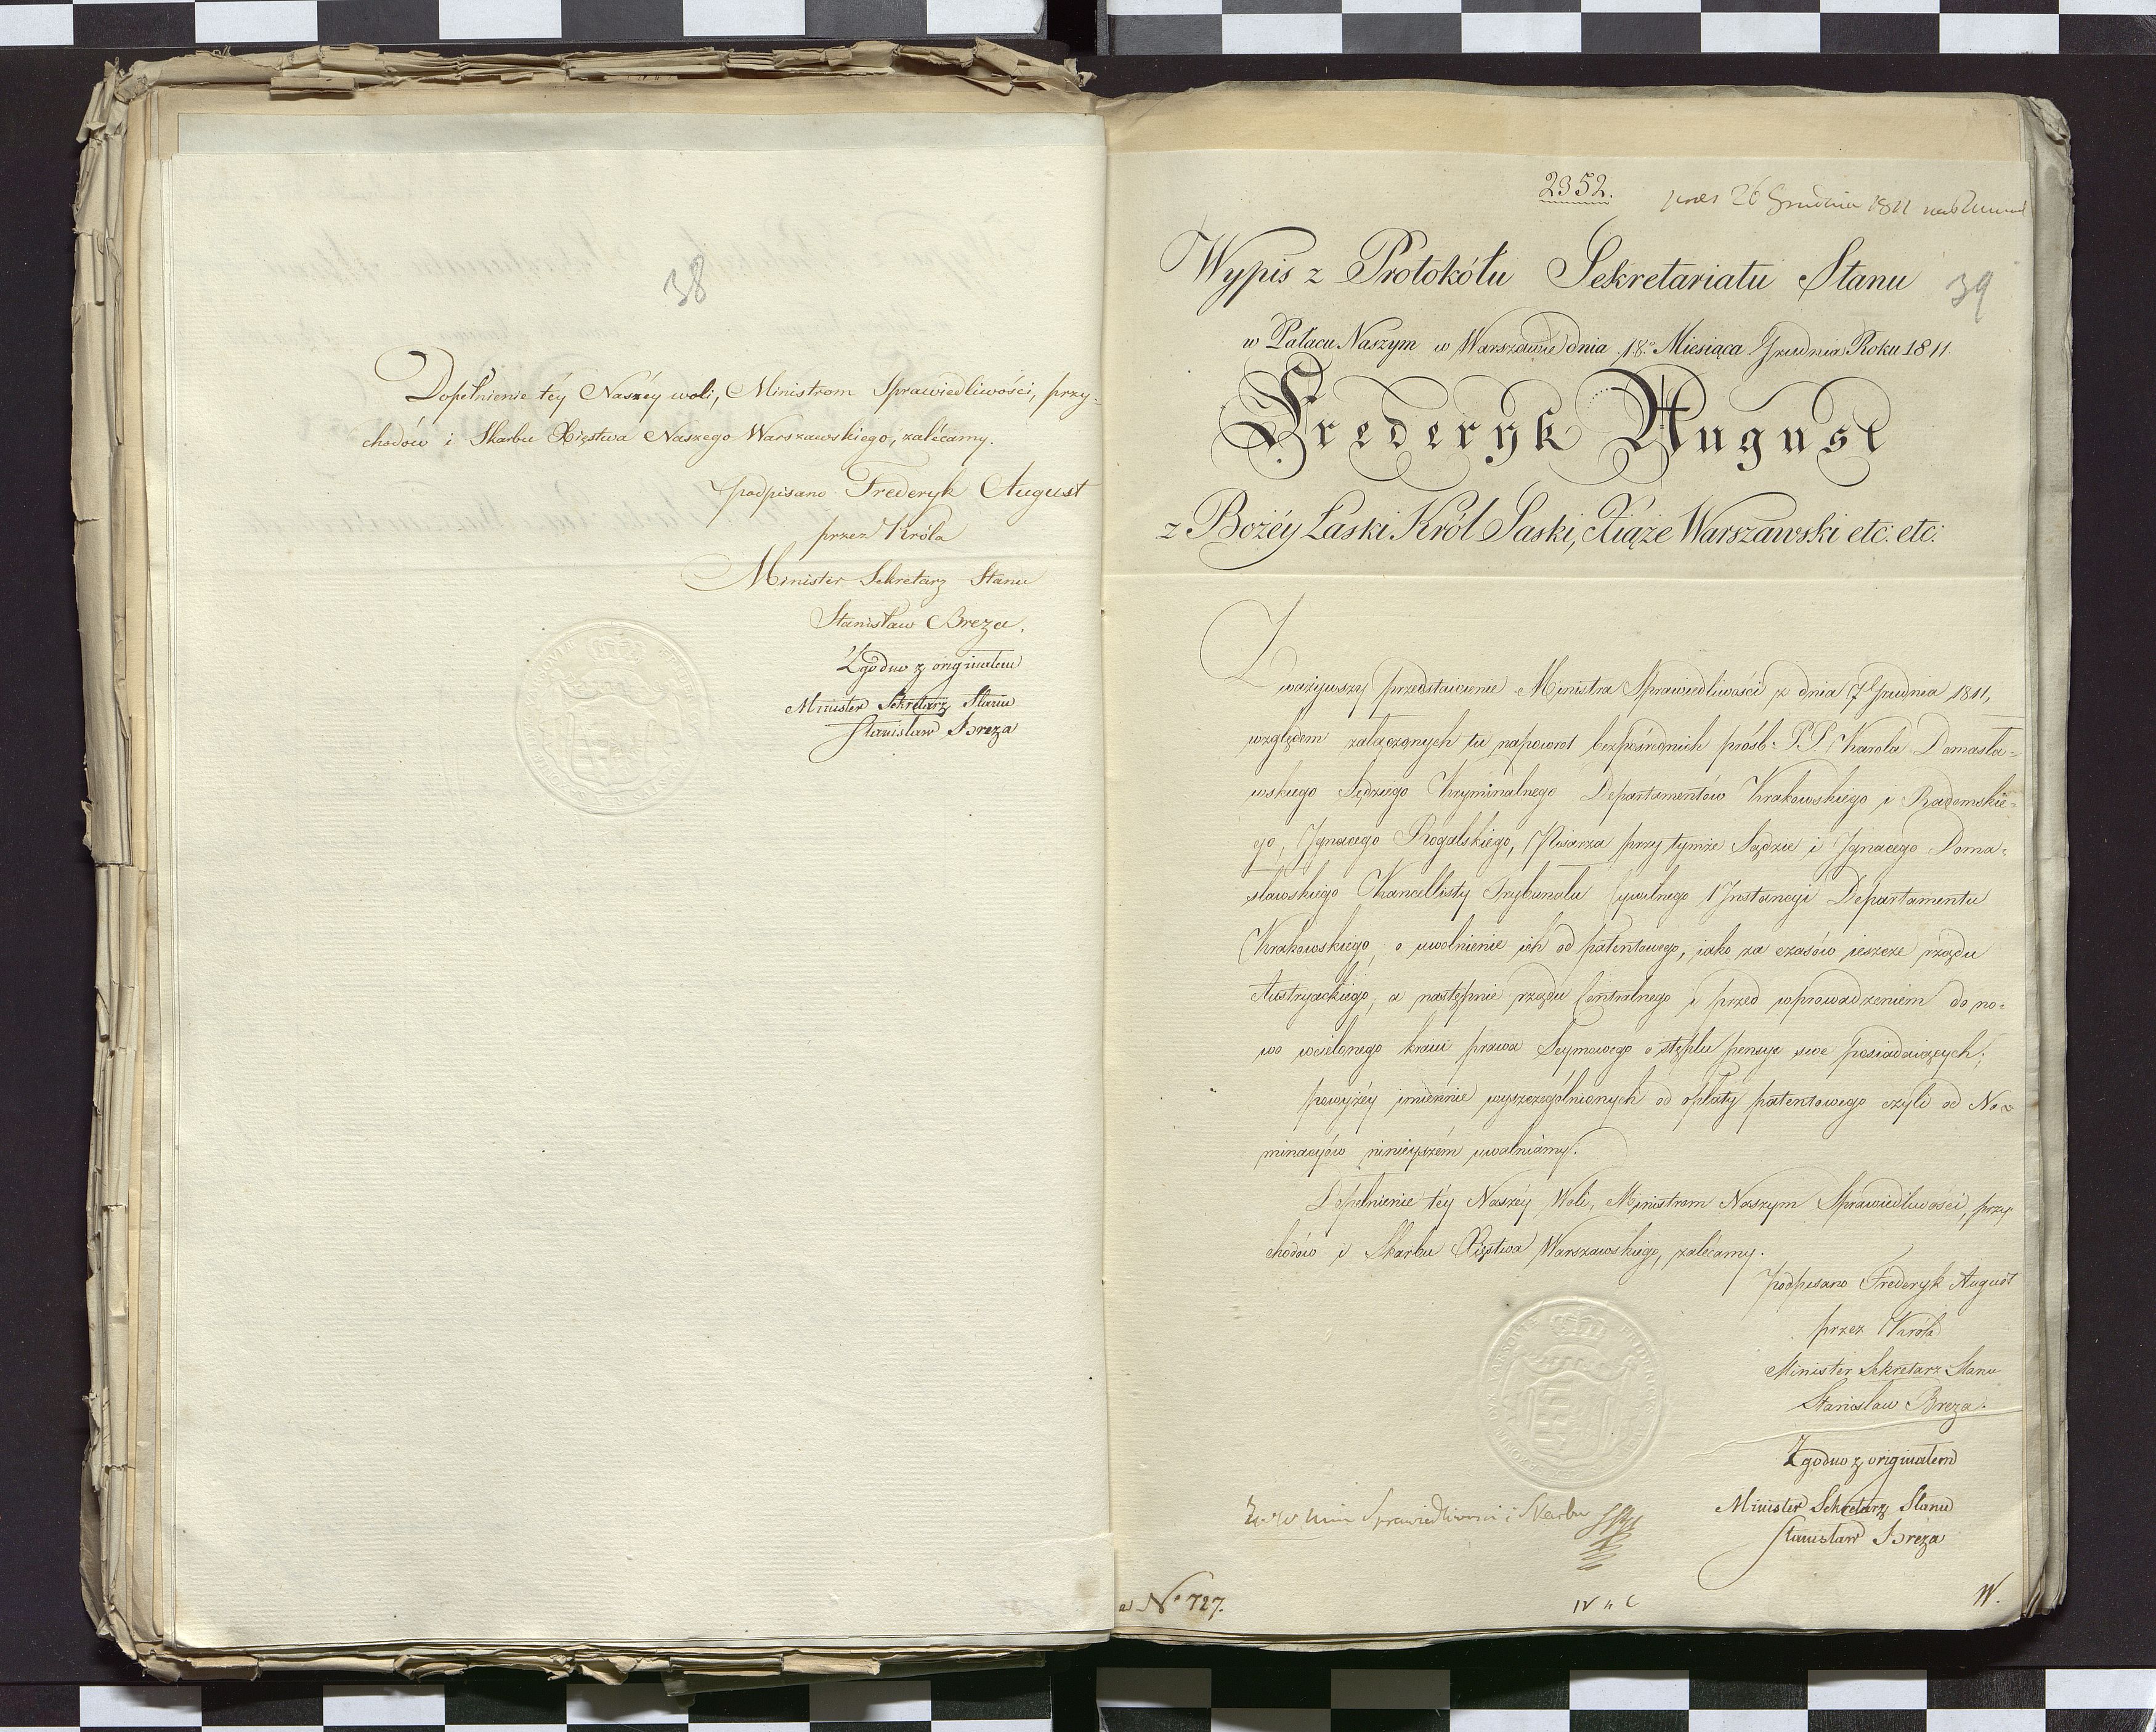 38
Dopełnienie téy Naszéy woli, Ministrom Sprawiedliwości, przy-
chodów i Skarbu Xięstwa Naszego Warszawskiego, zalécamy.
podpisano Frederyk August
przez Króla
Minister Sekretarz Stanu
Stanisław Breza.
Zgodno z originałem
Minister Sekretarz Stanu
Stanisław Breza
2352.
pres 26 Grudnia 1811
Wypis z Protokółu Sekretariatu Stanu
39
w Pałacu Naszym w Warszawie dnia 18º Miesiąca Grudnia Roku 1811.
Frederyk August
z Bożéy Łaski Król Saski, Xiąże Warszawski etc: etc:
Zważywszy przedstawienie Ministra Sprawiedliwości z dnia 7 Grudnia 1811,
względem załączonych tu napowrot bezpośrednich próśb: P.P. Karola Domasła-
wskiego Sędziego Kryminalnego Departamentów Krakowskiego i Radomskie-
go, Ignacego Rogalskiego, Pisarza przy tymże Sądzie i Ignacego Doma-
sławskiego Kancellisty Trybunału Cywilnego 1 Instancyi Departamentu
Krakowskiego, o uwolnienie ich od patentowego, iako za czasów ieszcze rządu
Austryackiego, a następnie rządu Centralnego i przed wprowadzeniem do no-
wo wcielonego kraiu prawa Seymowego o stęplu pensye swe posiadaiących;
powyżéy imiennie wyszczególnionych od opłaty patentowego czyli od No-
minacyów ninieyszém uwalniamy.
Dopełnienie téy Naszéy Woli, Ministrom Naszym Sprawiedliwości, przy
chodów i Skarbu Xięstwa Warszawskiego, zalecamy.
podpisano Frederyk August
przez Króla
Minister Sekretarz Stanu
Stanisław Breza.
Zgodno z originałem
Minister Sekretarz Stanu
Stanisław Breza
Min Sprawiedliwości i Skarbu
Nº 727.
W.